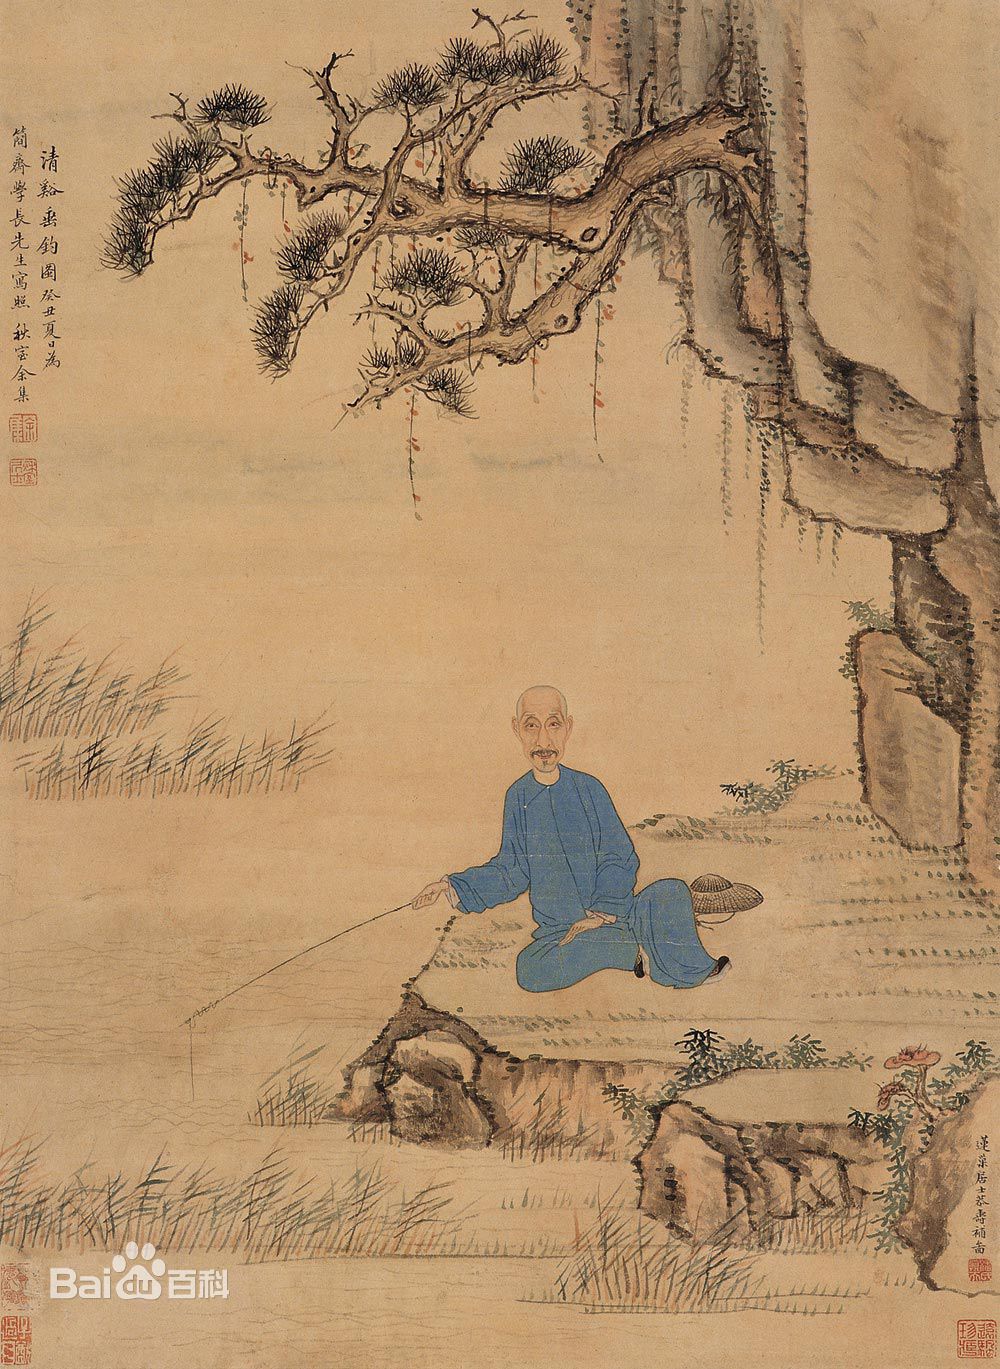 清谿垂釣圖癸丑夏日為
簡齋學長先生寫照 秋室余集
蓮巢居士恭壽補圖
Bai百科